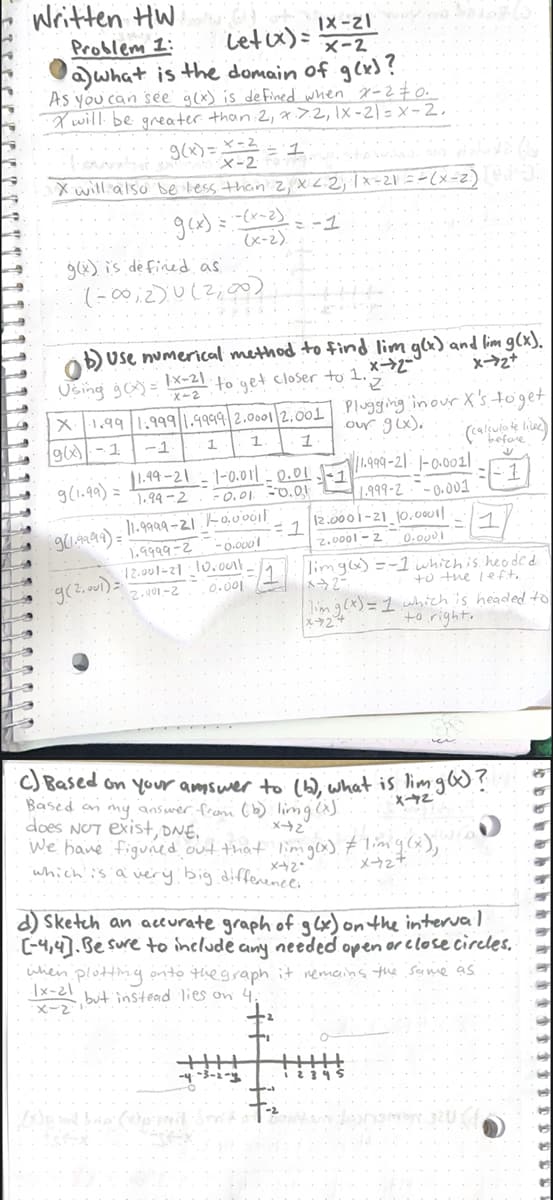 Written HW
Problem 1: Let (x) = |x-2| / x-2
a) what is the domain of g(x)?
As you can see g(x) is defined when x-2≠0.
X will be greater than 2, x>2, |x-2| = x-2.
g(x) = x-2 / x-2 = 1
X will also be less than 2, x<2, |x-2| = -(x-2)
g(x) = -(x-2) / (x-2) = -1
g(x) is defined as
(-∞,2)∪(2,∞)
b) Use numerical method to find lim g(x) and lim g(x).
x→2⁻ x→2⁺
Using g(x) = |x-2| / x-2 to get closer to 1.
X 1.99 1.999 1.9999 2.0001 2.001
g(x) -1 -1 1 1 1
Plugging in our X's to get
our g(x).
(calculate like before)
g(1.99) = |1.99-2| / 1.99-2 = |-0.01| / -0.01 = 0.01 / -0.01 = -1
|1.999-2| / 1.999-2 = |-0.001| / -0.001 = -1
g(1.9999) = |1.9999-2| / 1.9999-2 = |-0.0001| / -0.0001 = 1
|2.0001-2| / 2.0001-2 = |0.0001| / 0.0001 = 1
g(2.001) = |2.001-2| / 2.001-2 = |0.001| / 0.001 = 1
lim g(x) = -1 which is headed
x→2⁻ to the left.
lim g(x) = 1 which is headed to
x→2⁺ to right.
c) Based on your amswer to (b), what is lim g(x)?
x→2
Based on my answer from (b) lim g(x)
x→2
does NOT exist, DNE.
We have figured out that lim g(x) ≠ lim g(x),
x→2⁻ x→2⁺
which is a very big difference.
d) Sketch an accurate graph of g(x) on the interval
[-4,4]. Be sure to include any needed open or close circles.
when plotting onto the graph it remains the same as
|x-2| / x-2, but instead lies on 4.
2
1
-4 -3 -2 -1 1 2 3 4 5
-1
-2